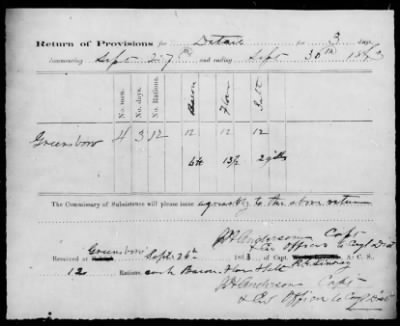 Return of Provisions for Detail for 3 days,
commencing Sept 27th and ending Sept 30th 1863
No. men. No. days. No. Rations. Bacon Flour Salt
Greensboro 4 3 12 12 12 12
13½ 2 gills
The Commissary of Subsistence will please issue agreeably to the above return
J H Anderson Capt
& Enr Officer 6 Cogl Dist
Received at Greensboro Sept 26th 1863 of Capt. A. C. S.,
12 Rations each Bacon Flour & Salt
J H Anderson Capt
& Enr Officer 6 Cogl Dist